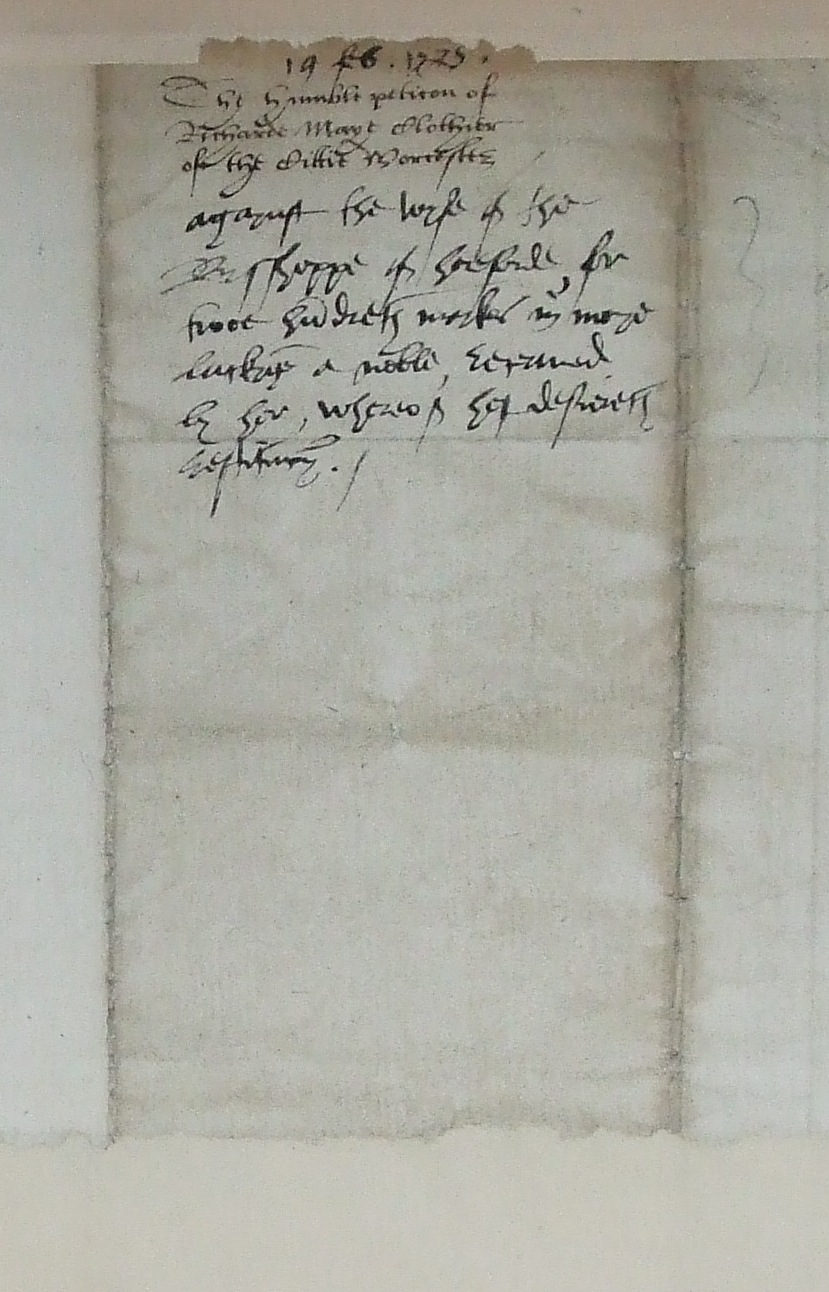 19 feb. 1585.
The humble peticon of
Richarde Maye Clothier
of the Cittie Worcester
agaynst the wyfe of the
Bysshoppe of hereforde, for
twoe hūdreth markes in mony
lackyng a noble, receaued
by her, whereof he desiereth
restitution./